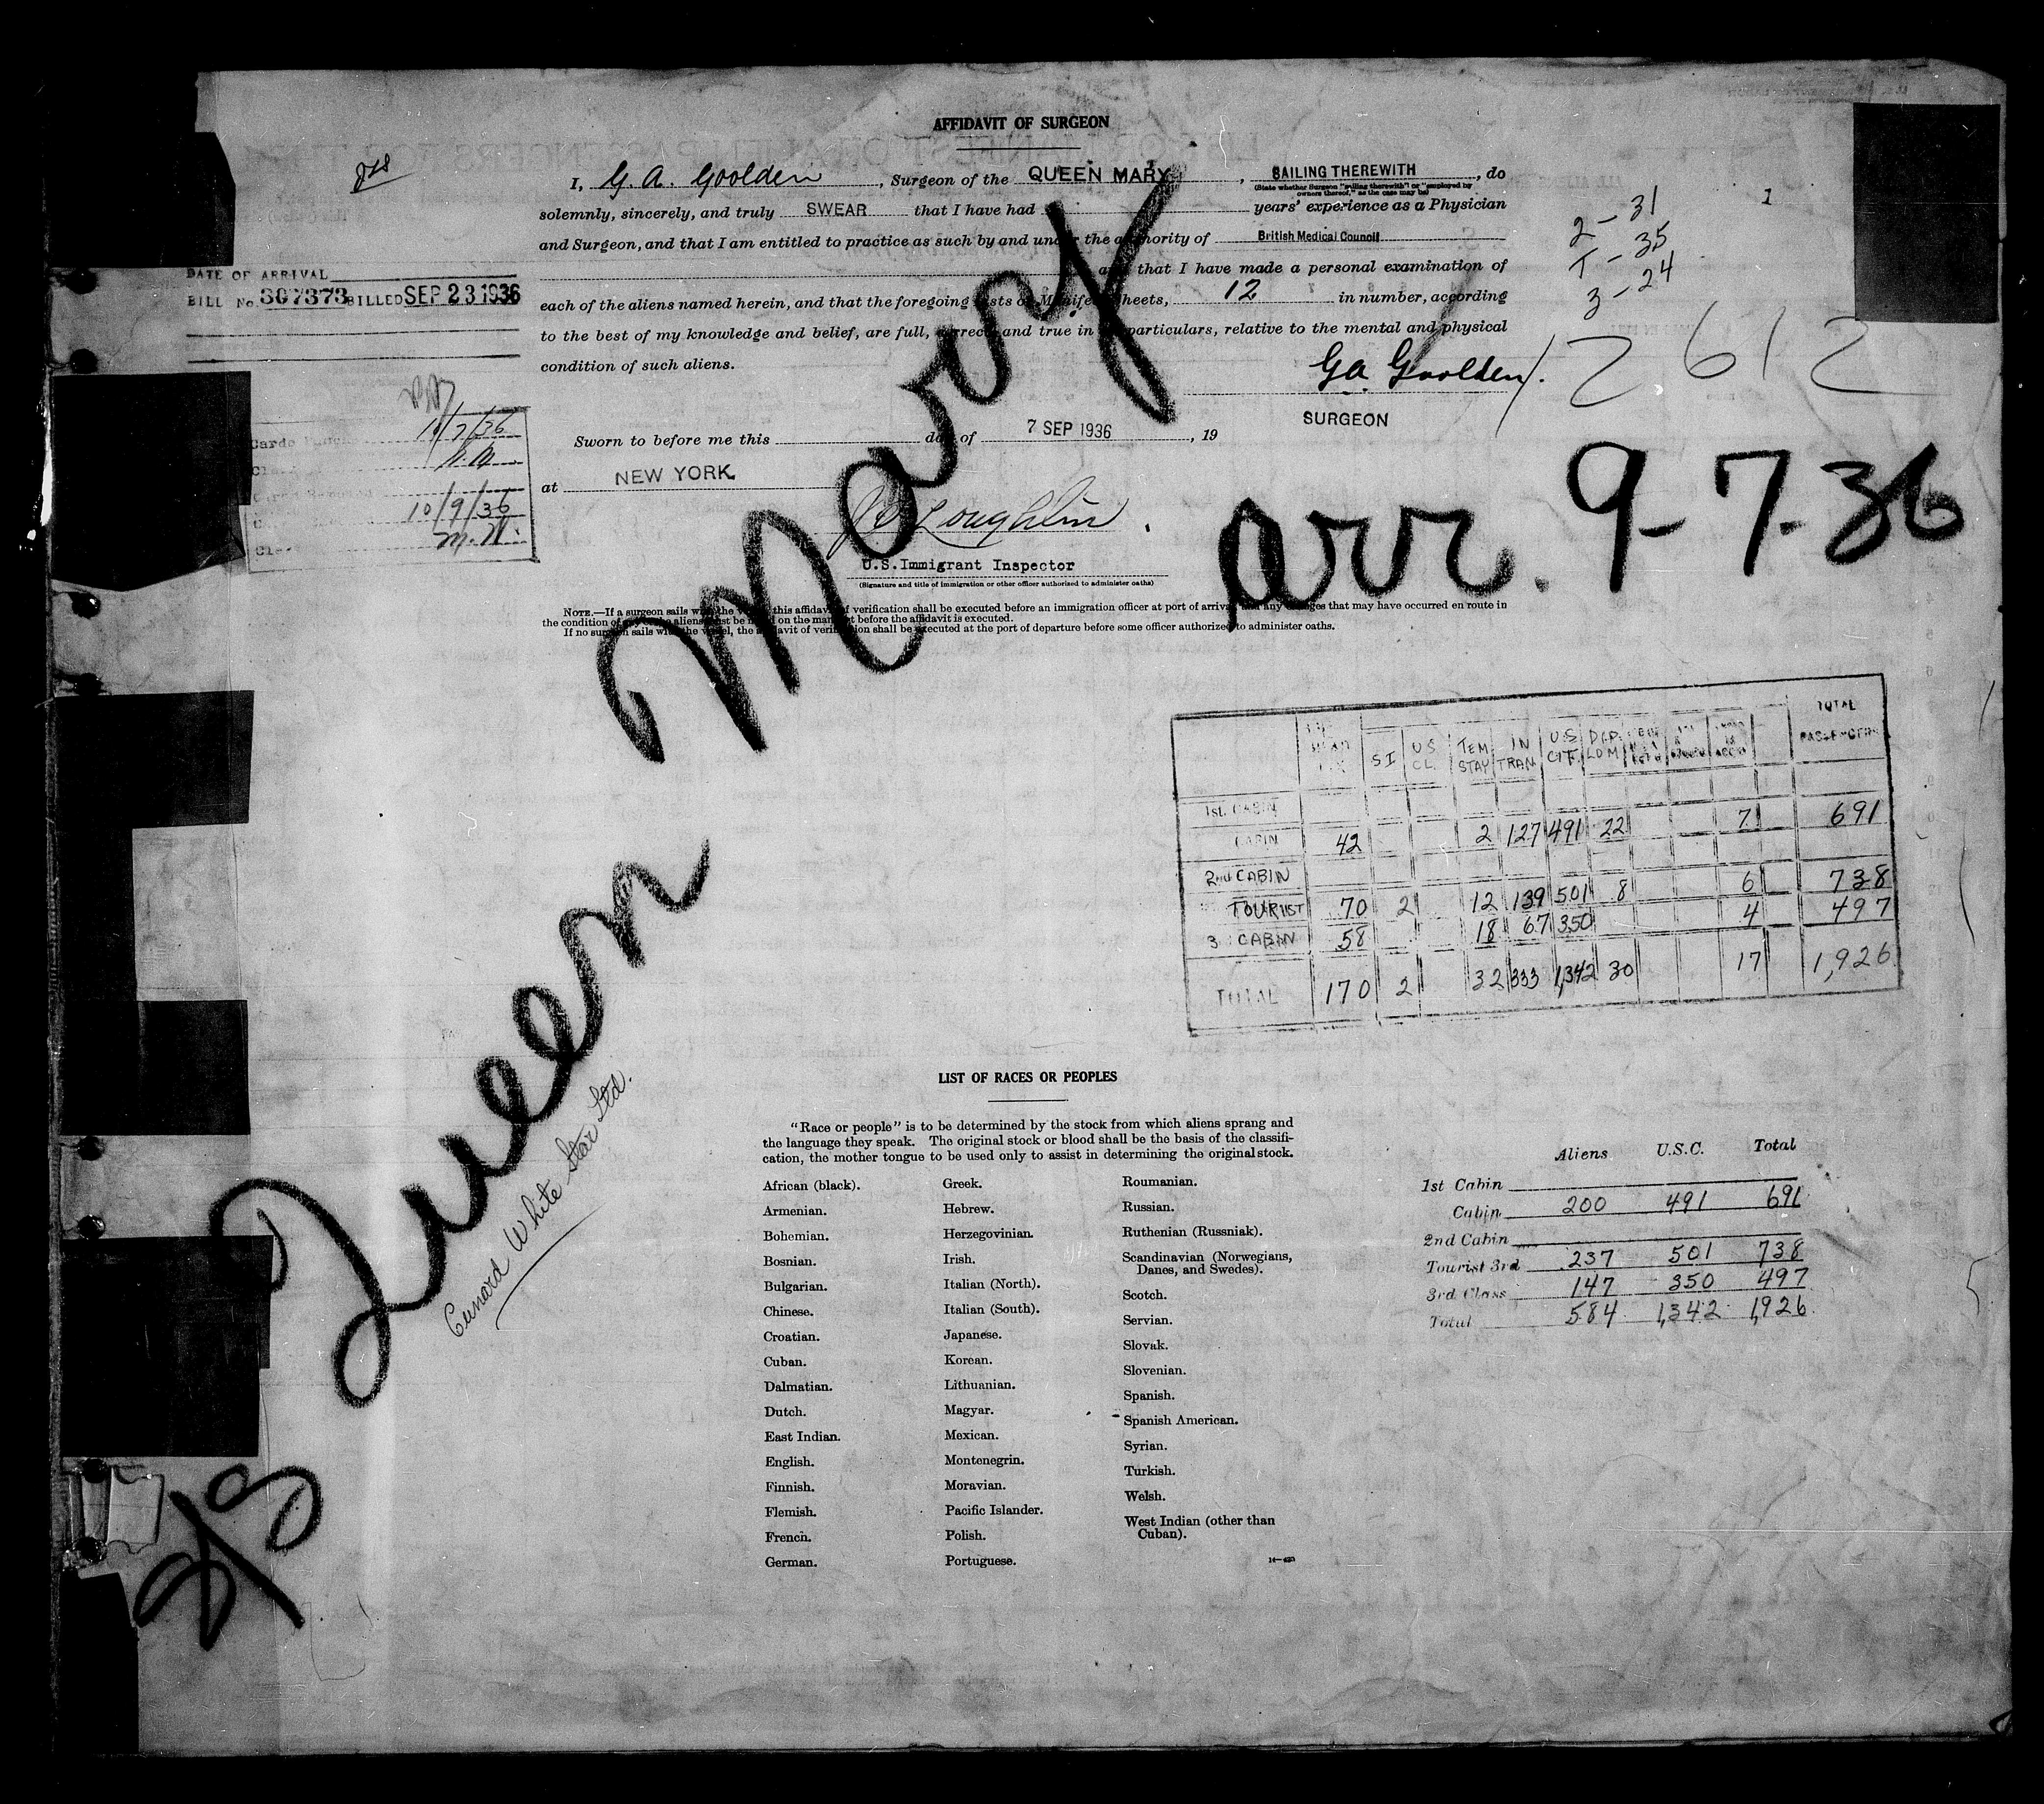 AFFIDAVIT OF SURGEON
I, G. A. Goolden, Surgeon of the QUEEN MARY, SAILING THEREWITH, do
(State whether Surgeon "sailing therewith" or "employed by
owners thereof," as the case may be)
solemnly, sincerely, and truly SWEAR that I have had years' experience as a Physician
and Surgeon, and that I am entitled to practice as such by and under the authority of British Medical Council
and that I have made a personal examination of
each of the aliens named herein, and that the foregoing Lists or Manifest Sheets, 12 in number, according
to the best of my knowledge and belief, are full, correct, and true in all particulars, relative to the mental and physical
condition of such aliens.
G A Goolden
SURGEON
Sworn to before me this day of 7 SEP 1936, 19
at NEW YORK
Loughlin
U.S. Immigrant Inspector
(Signature and title of immigration or other officer authorized to administer oaths)
NOTE.—If a surgeon sails with the vessel, this affidavit of verification shall be executed before an immigration officer at port of arrival and any changes that may have occurred en route in
the condition of any of the aliens must be noted on the manifest before the affidavit is executed.
If no surgeon sails with the vessel, the affidavit of verification shall be executed at the port of departure before some officer authorized to administer oaths.
DATE OF ARRIVAL
BILL No. 307373 BILLED SEP 23 1936
10/7/36
10/9/36
1
2-31
T-35
3-24
2612
S/S Queen Mary
arr. 9-7-36
Cunard White Star Ltd.
SI U.S CL. TEM STAY IN TRAN U.S CIT. DIPLOM TOTAL PASSENGERS
1st. CABIN
CABIN 42 2 127 491 22 7 691
2nd CABIN
TOURIST 70 2 12 139 501 8 6 738
3 CABIN 58 18 67 350 4 497
TOTAL 170 2 32 333 1,342 30 17 1,926
LIST OF RACES OR PEOPLES
"Race or people" is to be determined by the stock from which aliens sprang and
the language they speak. The original stock or blood shall be the basis of the classifi-
cation, the mother tongue to be used only to assist in determining the original stock.
African (black).
Armenian.
Bohemian.
Bosnian.
Bulgarian.
Chinese.
Croatian.
Cuban.
Dalmatian.
Dutch.
East Indian.
English.
Finnish.
Flemish.
French.
German.
Greek.
Hebrew.
Herzegovinian.
Irish.
Italian (North).
Italian (South).
Japanese.
Korean.
Lithuanian.
Magyar.
Mexican.
Montenegrin.
Moravian.
Pacific Islander.
Polish.
Portuguese.
Roumanian.
Russian.
Ruthenian (Russniak).
Scandinavian (Norwegians,
Danes, and Swedes).
Scotch.
Servian.
Slovak.
Slovenian.
Spanish.
Spanish American.
Syrian.
Turkish.
Welsh.
West Indian (other than
Cuban).
Aliens U.S.C. Total
1st Cabin
Cabin 200 491 691
2nd Cabin
Tourist 3rd 237 501 738
3rd Class 147 350 497
Total 584 1,342 1,926